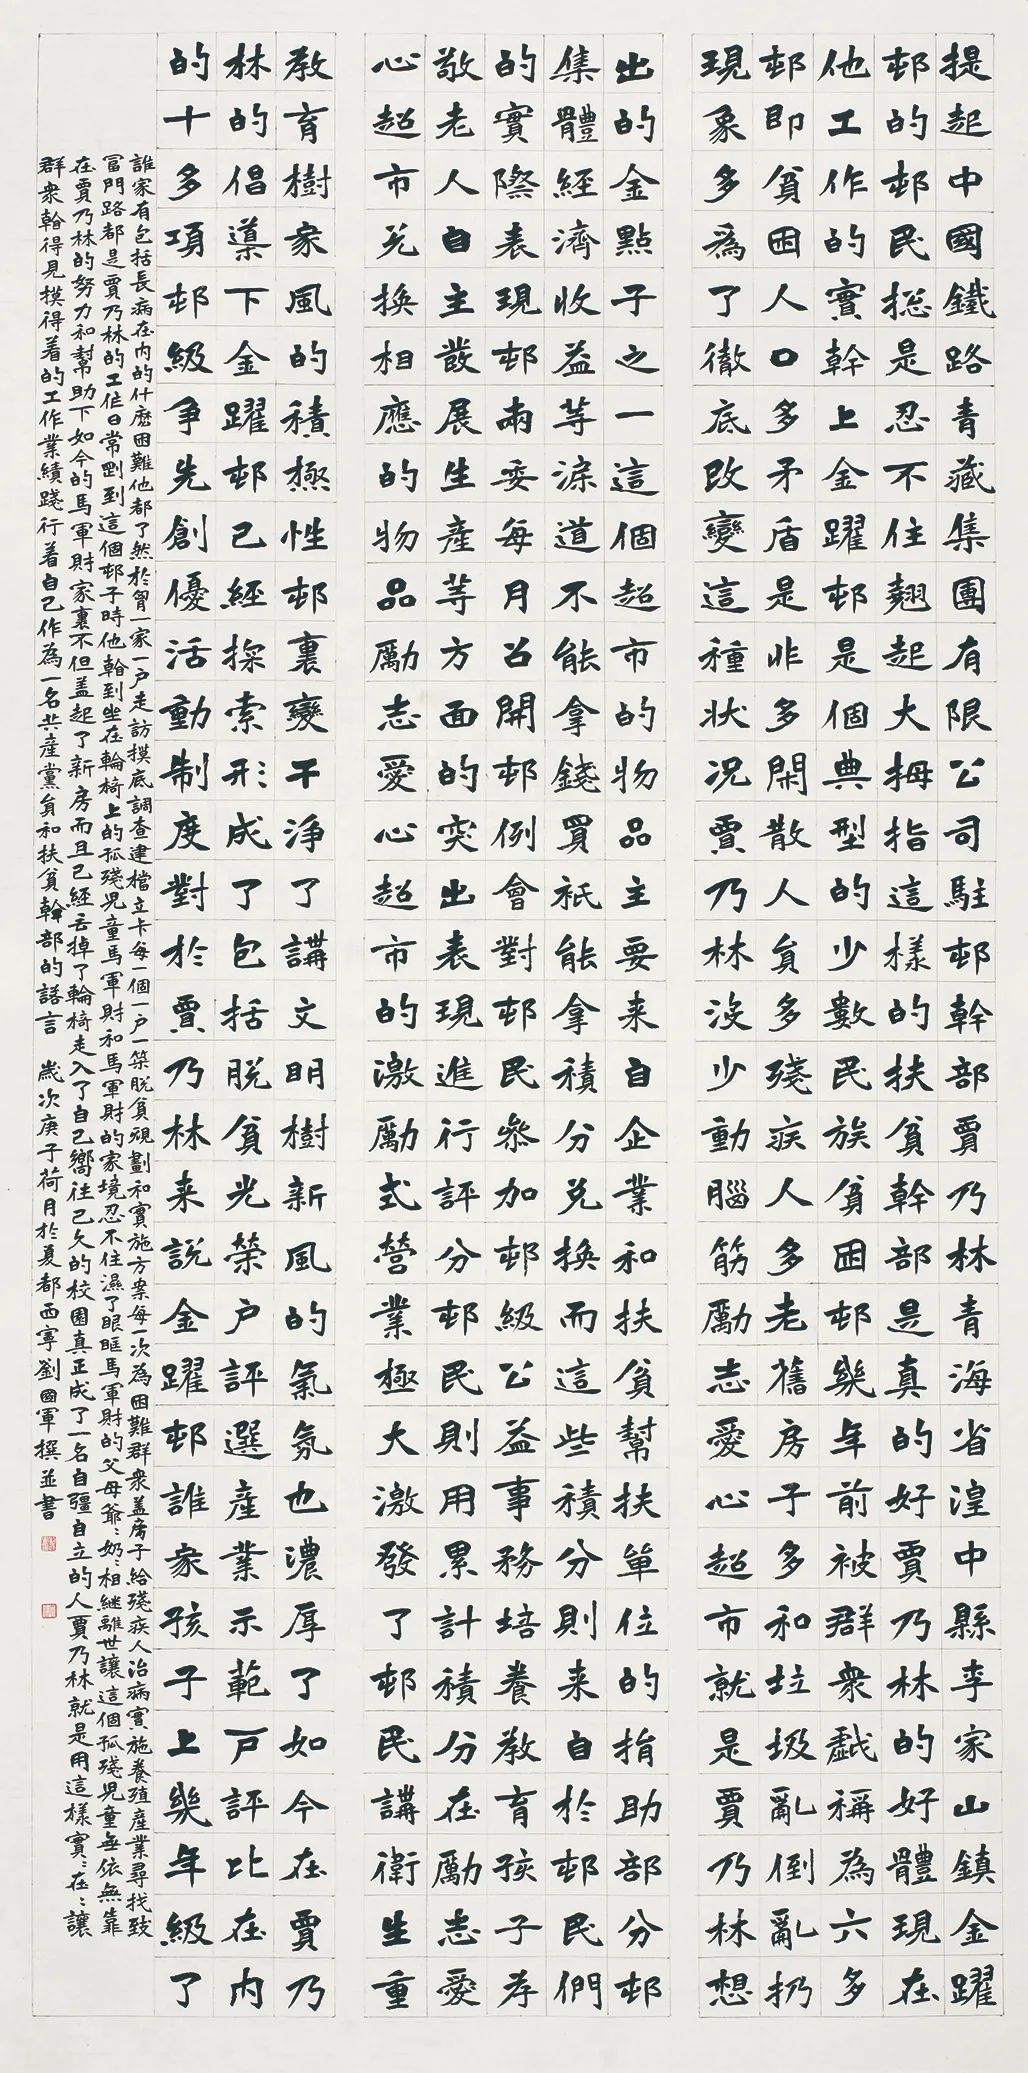 提起中國鐵路青藏集團有限公司駐邨幹部賈乃林青海省湟中縣李家山鎮金躍
邨的邨民揔是忍不住翹起大拇指這樣的扶貧幹部是真的好賈乃林的好體現在
他工作的實幹上金躍邨是個典型的少數民族貧困邨幾年前被群衆戲稱為六多
邨即貧困人口多矛盾是非多閑散人員多殘疾人多老舊房子多和垃圾亂倒亂扔
現象多為了徹底改變這種狀况賈乃林没少動腦筋勵志愛心超市就是賈乃林想
出的金點子之一這個超市的物品主要来自企業和扶貧幫扶單位的捐助部分邨
集體經濟收益等渠道不能拿錢買祇能拿積分兑換而這些積分則来自於邨民們
的實際表現邨兩委每月召開邨例會對邨民參加邨級公益事務培養教育孩子孝
敬老人自主發展生產等方面的突出表現進行評分邨民則用累計積分在勵志愛
心超市兑換相應的物品勵志愛心超市的激勵式營業極大激發了邨民講衛生重
教育樹家風的積極性邨裏變干淨了講文明樹新風的氣氛也濃厚了如今在賈乃
林的倡導下金躍邨已經探索形成了包括脱貧光榮户評選產業示範户評比在内
的十多項邨級爭先創優活動制度對於賈乃林来說金躍邨誰家孩子上幾年級了
誰家有包括長病在内的什麽困難他都了然於胷一家一户走訪摸底調查建檔立卡每一個一户一策脱貧規劃和實施方案每一次為困難群衆盖房子給殘疾人治病實施養殖產業尋找致
富門路都是賈乃林的工作日常剛到這個邨子時他幹到坐在輪椅上的孤殘児童馬軍財和馬軍財的家境忍不住濕了眼眶馬軍財的父母爺:奶:相繼離世讓這個孤殘児童無依無靠
在賈乃林的努力和幫助下如今的馬軍財家裏不但盖起了新房而且已經丢掉了輪椅走入了自己嚮往已久的校園真正成了一名自强自立的人賈乃林就是用這樣實:在:讓
群衆幹得見摸得着的工作業績踐行着自己作為一名共產黨員和扶貧幹部的諾言 歲次庚子荷月於夏都西寧劉國軍撰並書